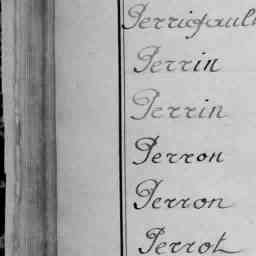 Perrigault
Perrin
Perrin
Perron
Perron
Perrot